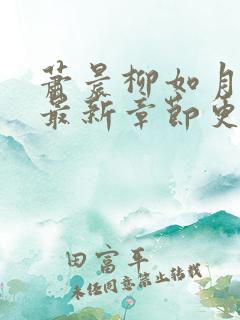 萧晨柳如月
最新章节史
田富平
未经同意禁止转载